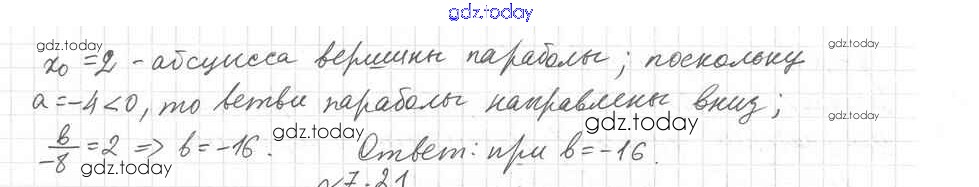 gdz.today
gdz.today
gdz.today
x₀ = 2 - абсцисса вершины параболы; поскольку
a = -4 < 0, то ветви параболы направлены вниз;
gdz.today
gdz.today
в/-8 = 2 => в = -16. Ответ: при в = -16.
gdz.today
№7.21